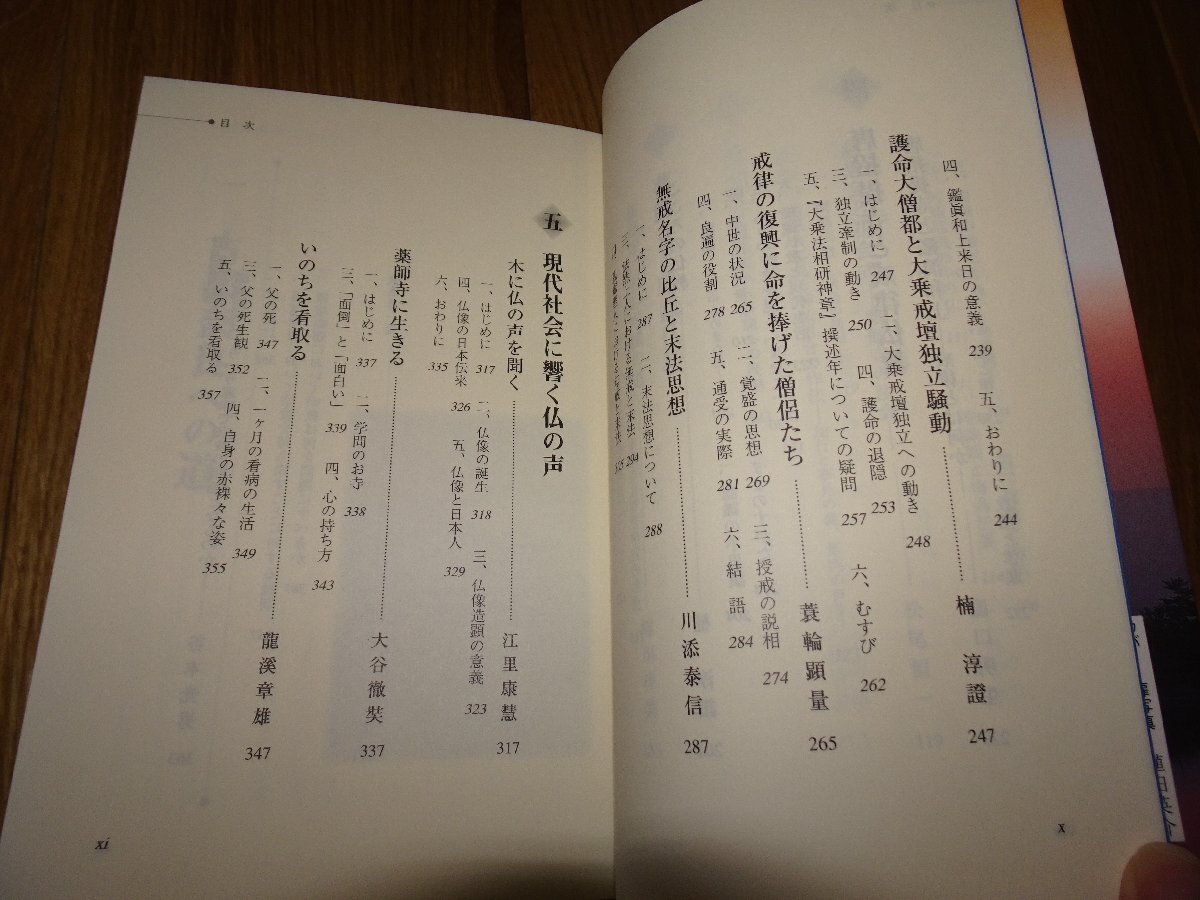 四、鑑眞和上来日の意義 239 五、おわりに 244
護命大僧都と大乗戒壇独立騒動 楠 淳證 247
一、はじめに 247 二、大乗戒壇独立への動き 248
三、独立牽制の動き 250 四、護命の退隠 253
五、『大乗法相研神章』撰述年についての疑問 257 六、むすび 262
戒律の復興に命を捧げた僧侶たち 蓑輪顕量 265
一、中世の状況 265 二、覚盛の思想 269 三、授戒の説相 274
四、良遍の役割 278 五、通受の実際 281 六、結語 284
無戒名字の比丘と末法思想 川添泰信 287
一、はじめに 287 二、末法思想について 288
x
目次
五 現代社会に響く仏の声
木に仏の声を聞く 江里康慧 317
一、はじめに 317 二、仏像の誕生 318 三、仏像造顕の意義 323
四、仏像の日本伝来 326 五、仏像と日本人 329
六、おわりに 335
薬師寺に生きる 大谷徹奘 337
一、はじめに 337 二、学問のお寺 338
三、「面倒」と「面白い」 339 四、心の持ち方 343
いのちを看取る 龍溪章雄 347
一、父の死 347 二、一ヶ月の看病の生活 349
三、父の死生観 352 四、自身の赤裸々な姿 355
五、いのちを看取る 357
xi